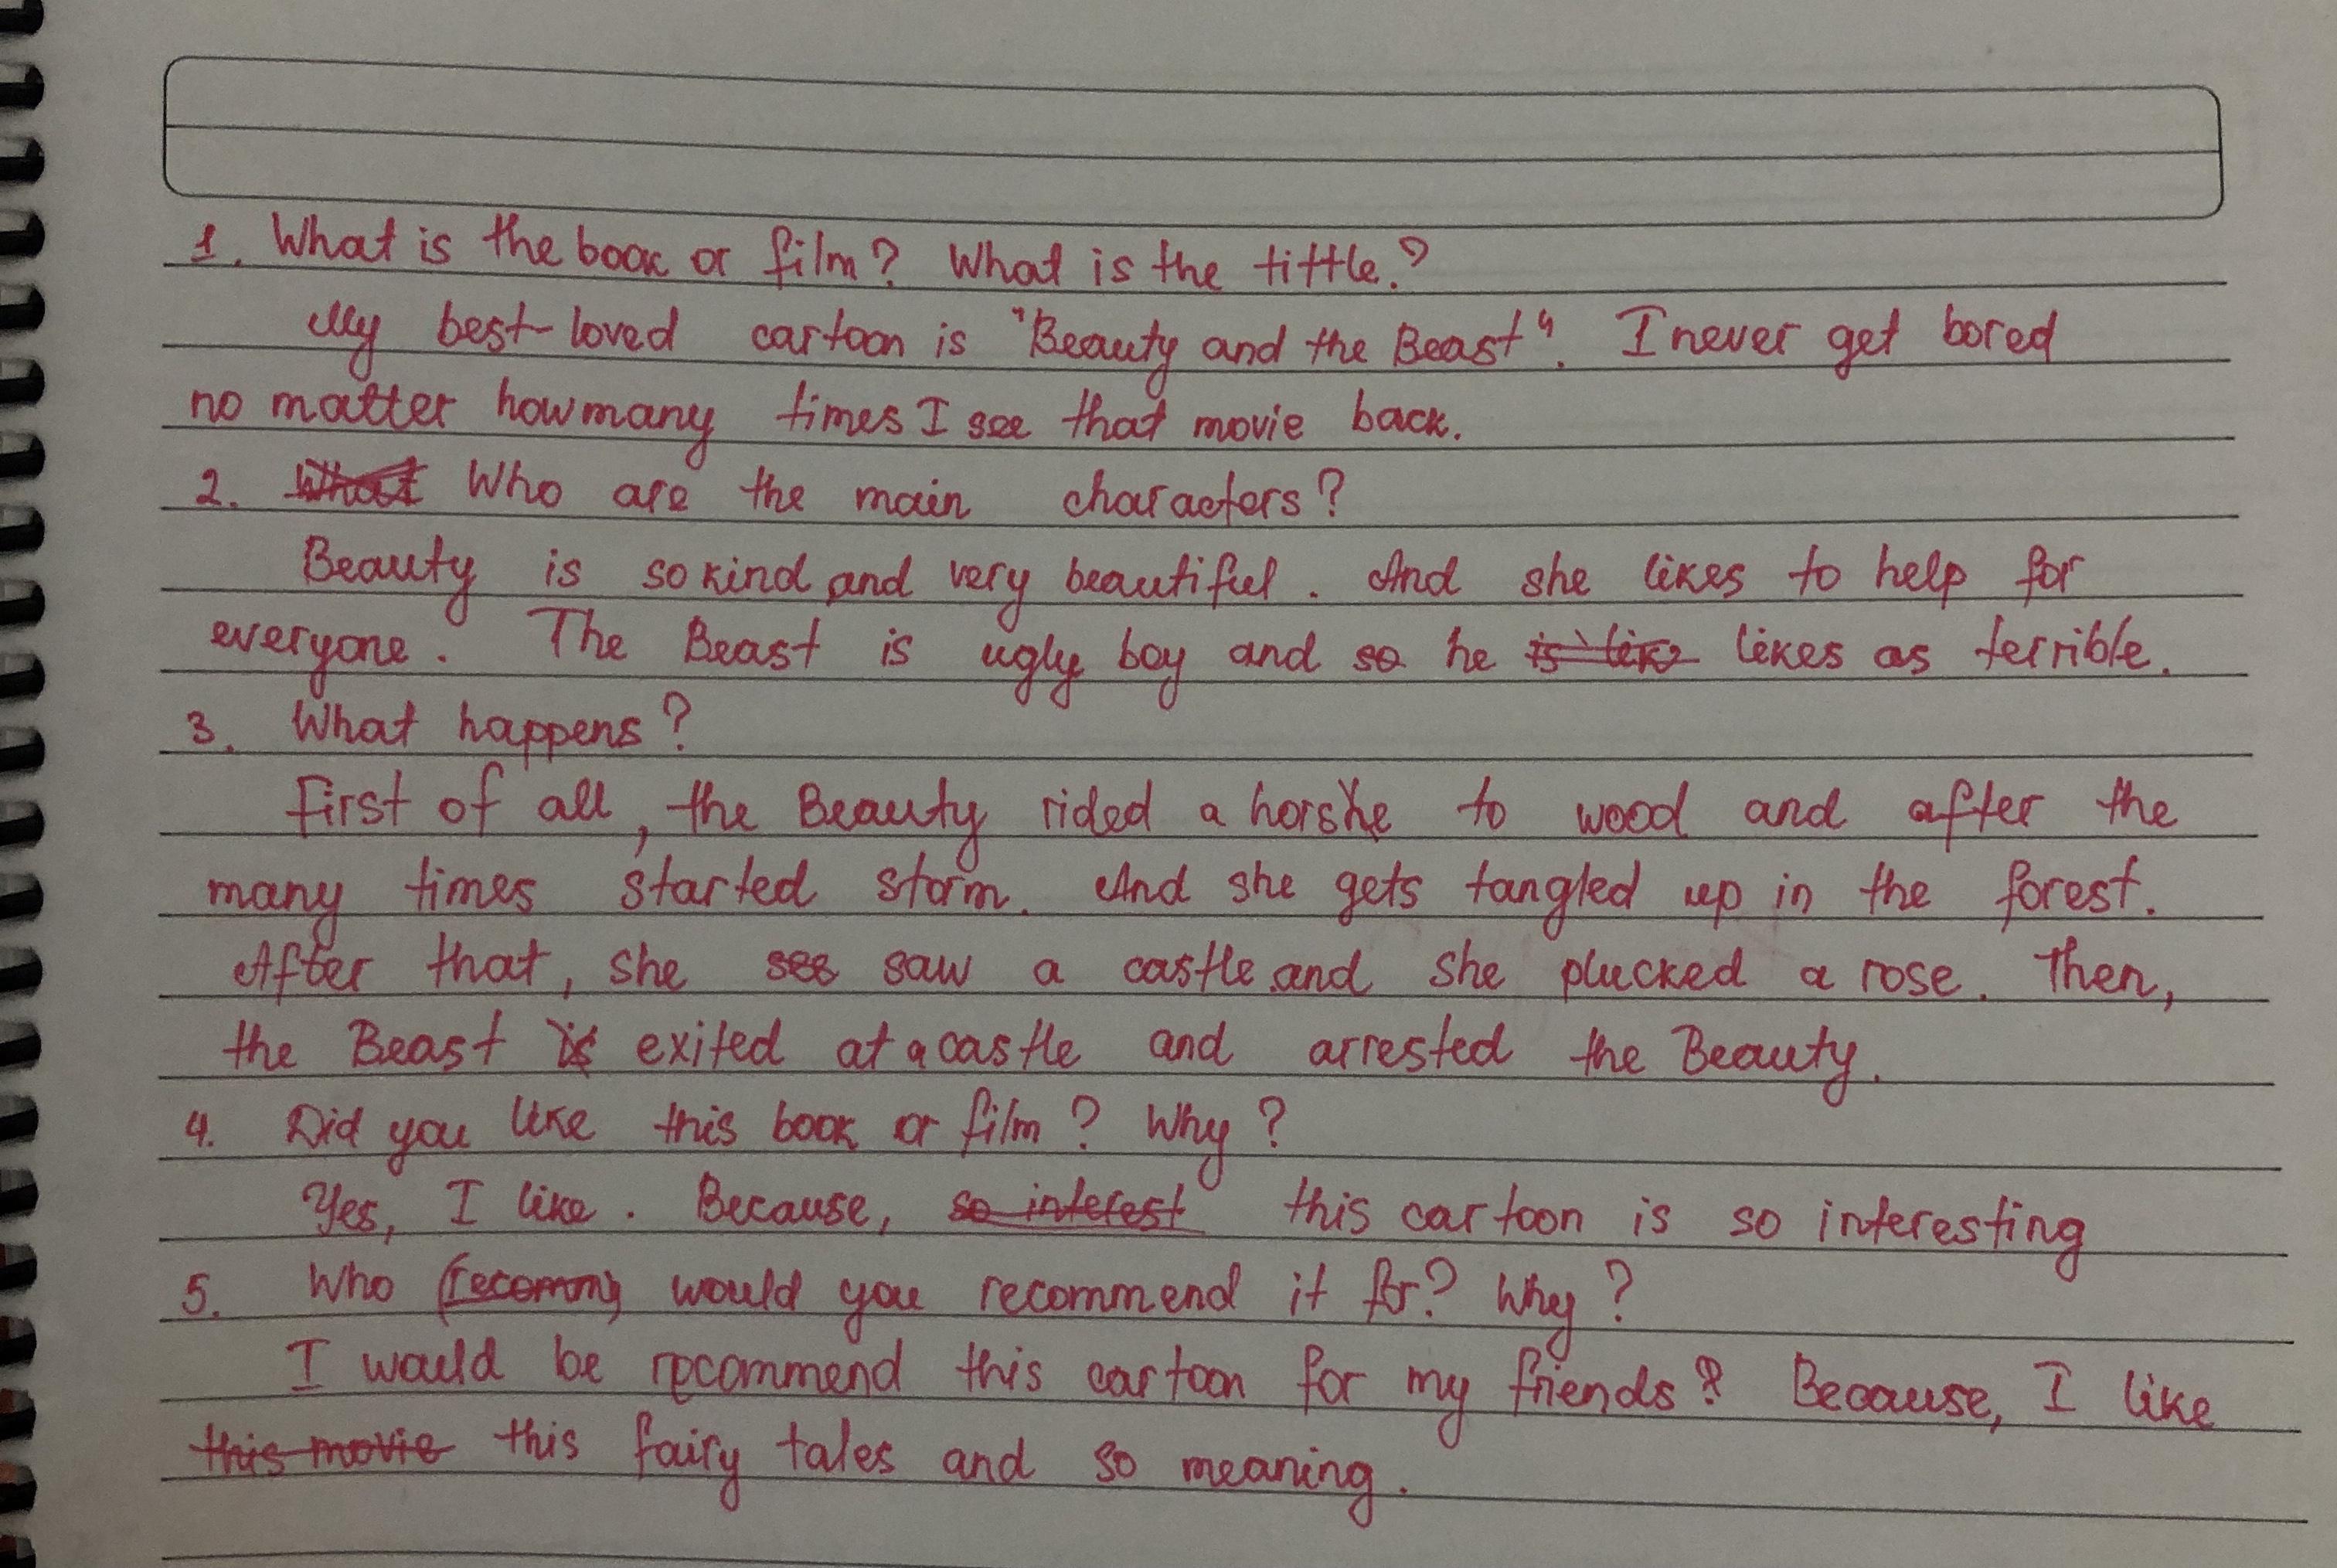 1. What is the book or film? What is the tittle?
My best-loved cartoon is "Beauty and the Beast". I never get bored
no matter how many times I see that movie back.
2. What Who are the main characters?
Beauty is so kind and very beautiful. And she likes to help for
everyone. The Beast is ugly boy and so he is like likes as terrible.
3. What happens?
First of all, the Beauty rided a horshe to wood and after the
many times started storm. And she gets tangled up in the forest.
After that, she see saw a castle and she plucked a rose. Then,
the Beast is exited at a castle and arrested the Beauty.
4. Did you like this book or film? Why?
Yes, I like. Because, so interest this cartoon is so interesting
5. Who (recomm) would you recommend it for? Why?
I would be recommend this cartoon for my friends? Because, I like
this movie this fairy tales and so meaning.